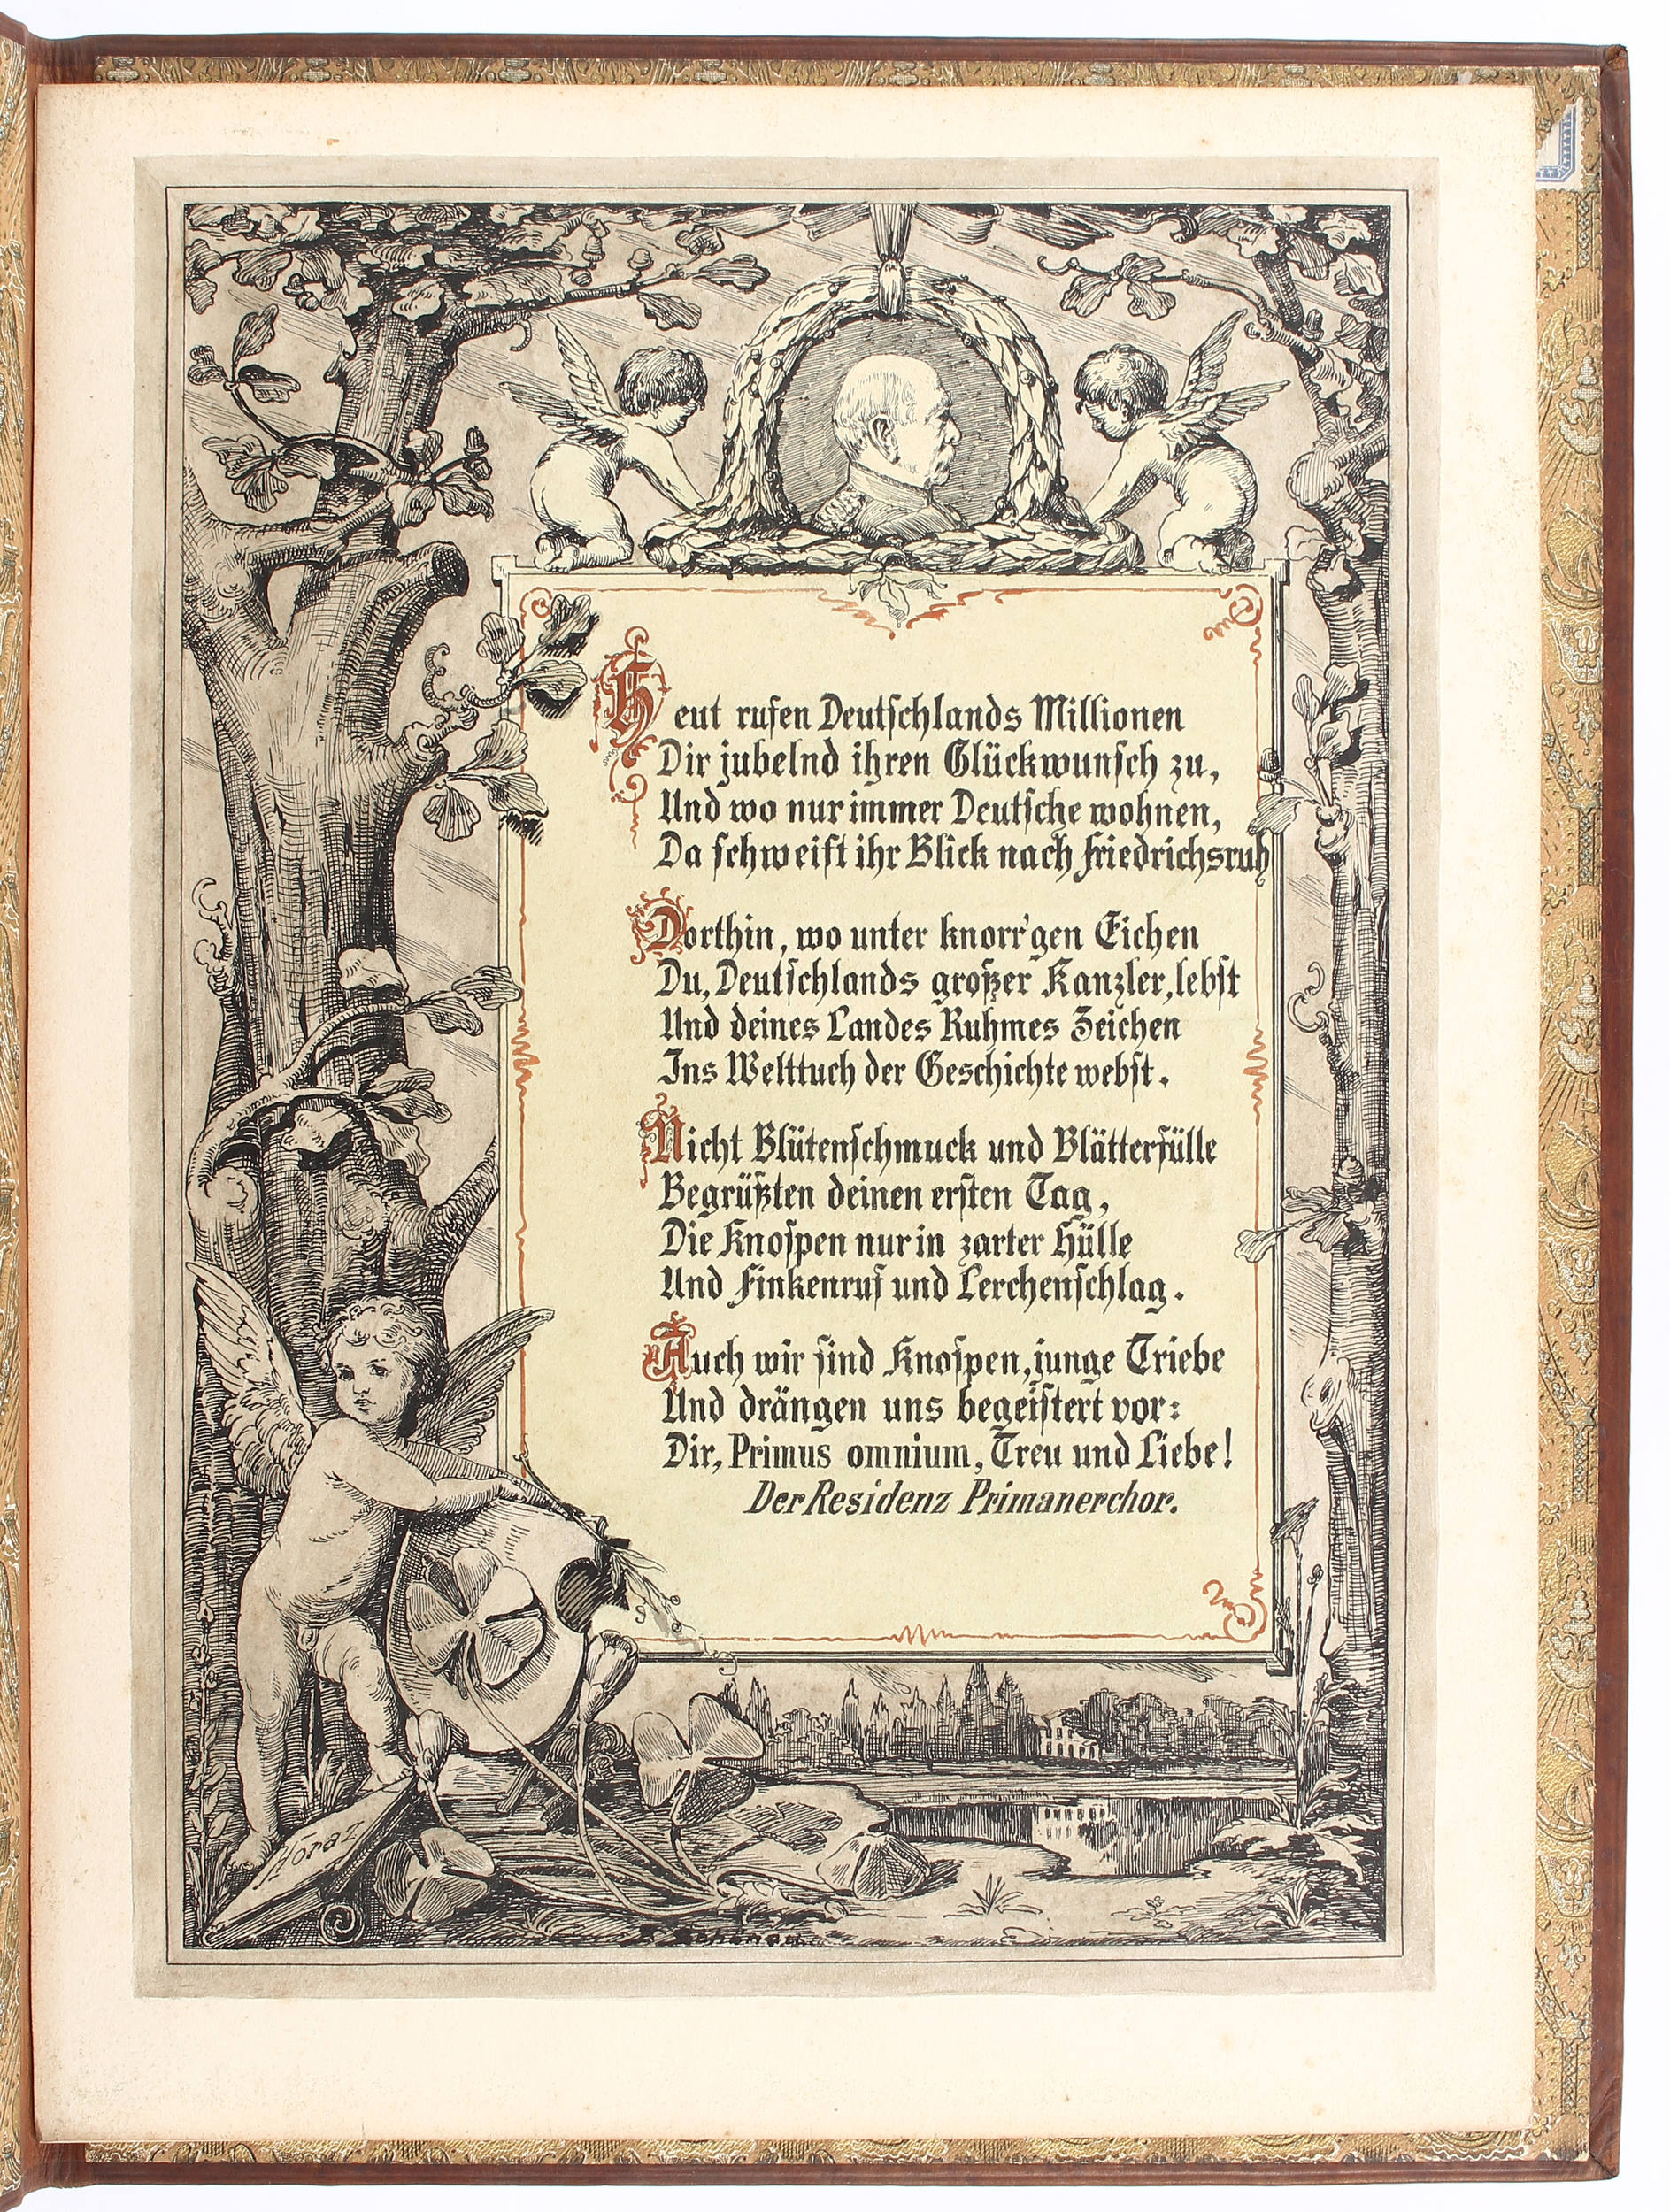 Heut rufen Deutschlands Millionen
Dir jubelnd ihren Glückwunsch zu,
Und wo nur immer Deutsche wohnen,
Da schweift ihr Blick nach Friedrichsruh
Dorthin, wo unter knorr'gen Eichen
Du, Deutschlands großer Kanzler, lebst
Und deines Landes Ruhmes Zeichen
Ins Welttuch der Geschichte webst.
Nicht Blütenschmuck und Blätterfülle
Begrüßten deinen ersten Tag,
Die Knospen nur in zarter Hülle
Und Finkenruf und Lerchenschlag.
Auch wir sind Knospen, junge Triebe
Und drängen uns begeistert vor:
Dir, Primus omnium, Treu und Liebe!
Der Residenz Primanerchor.
Horaz